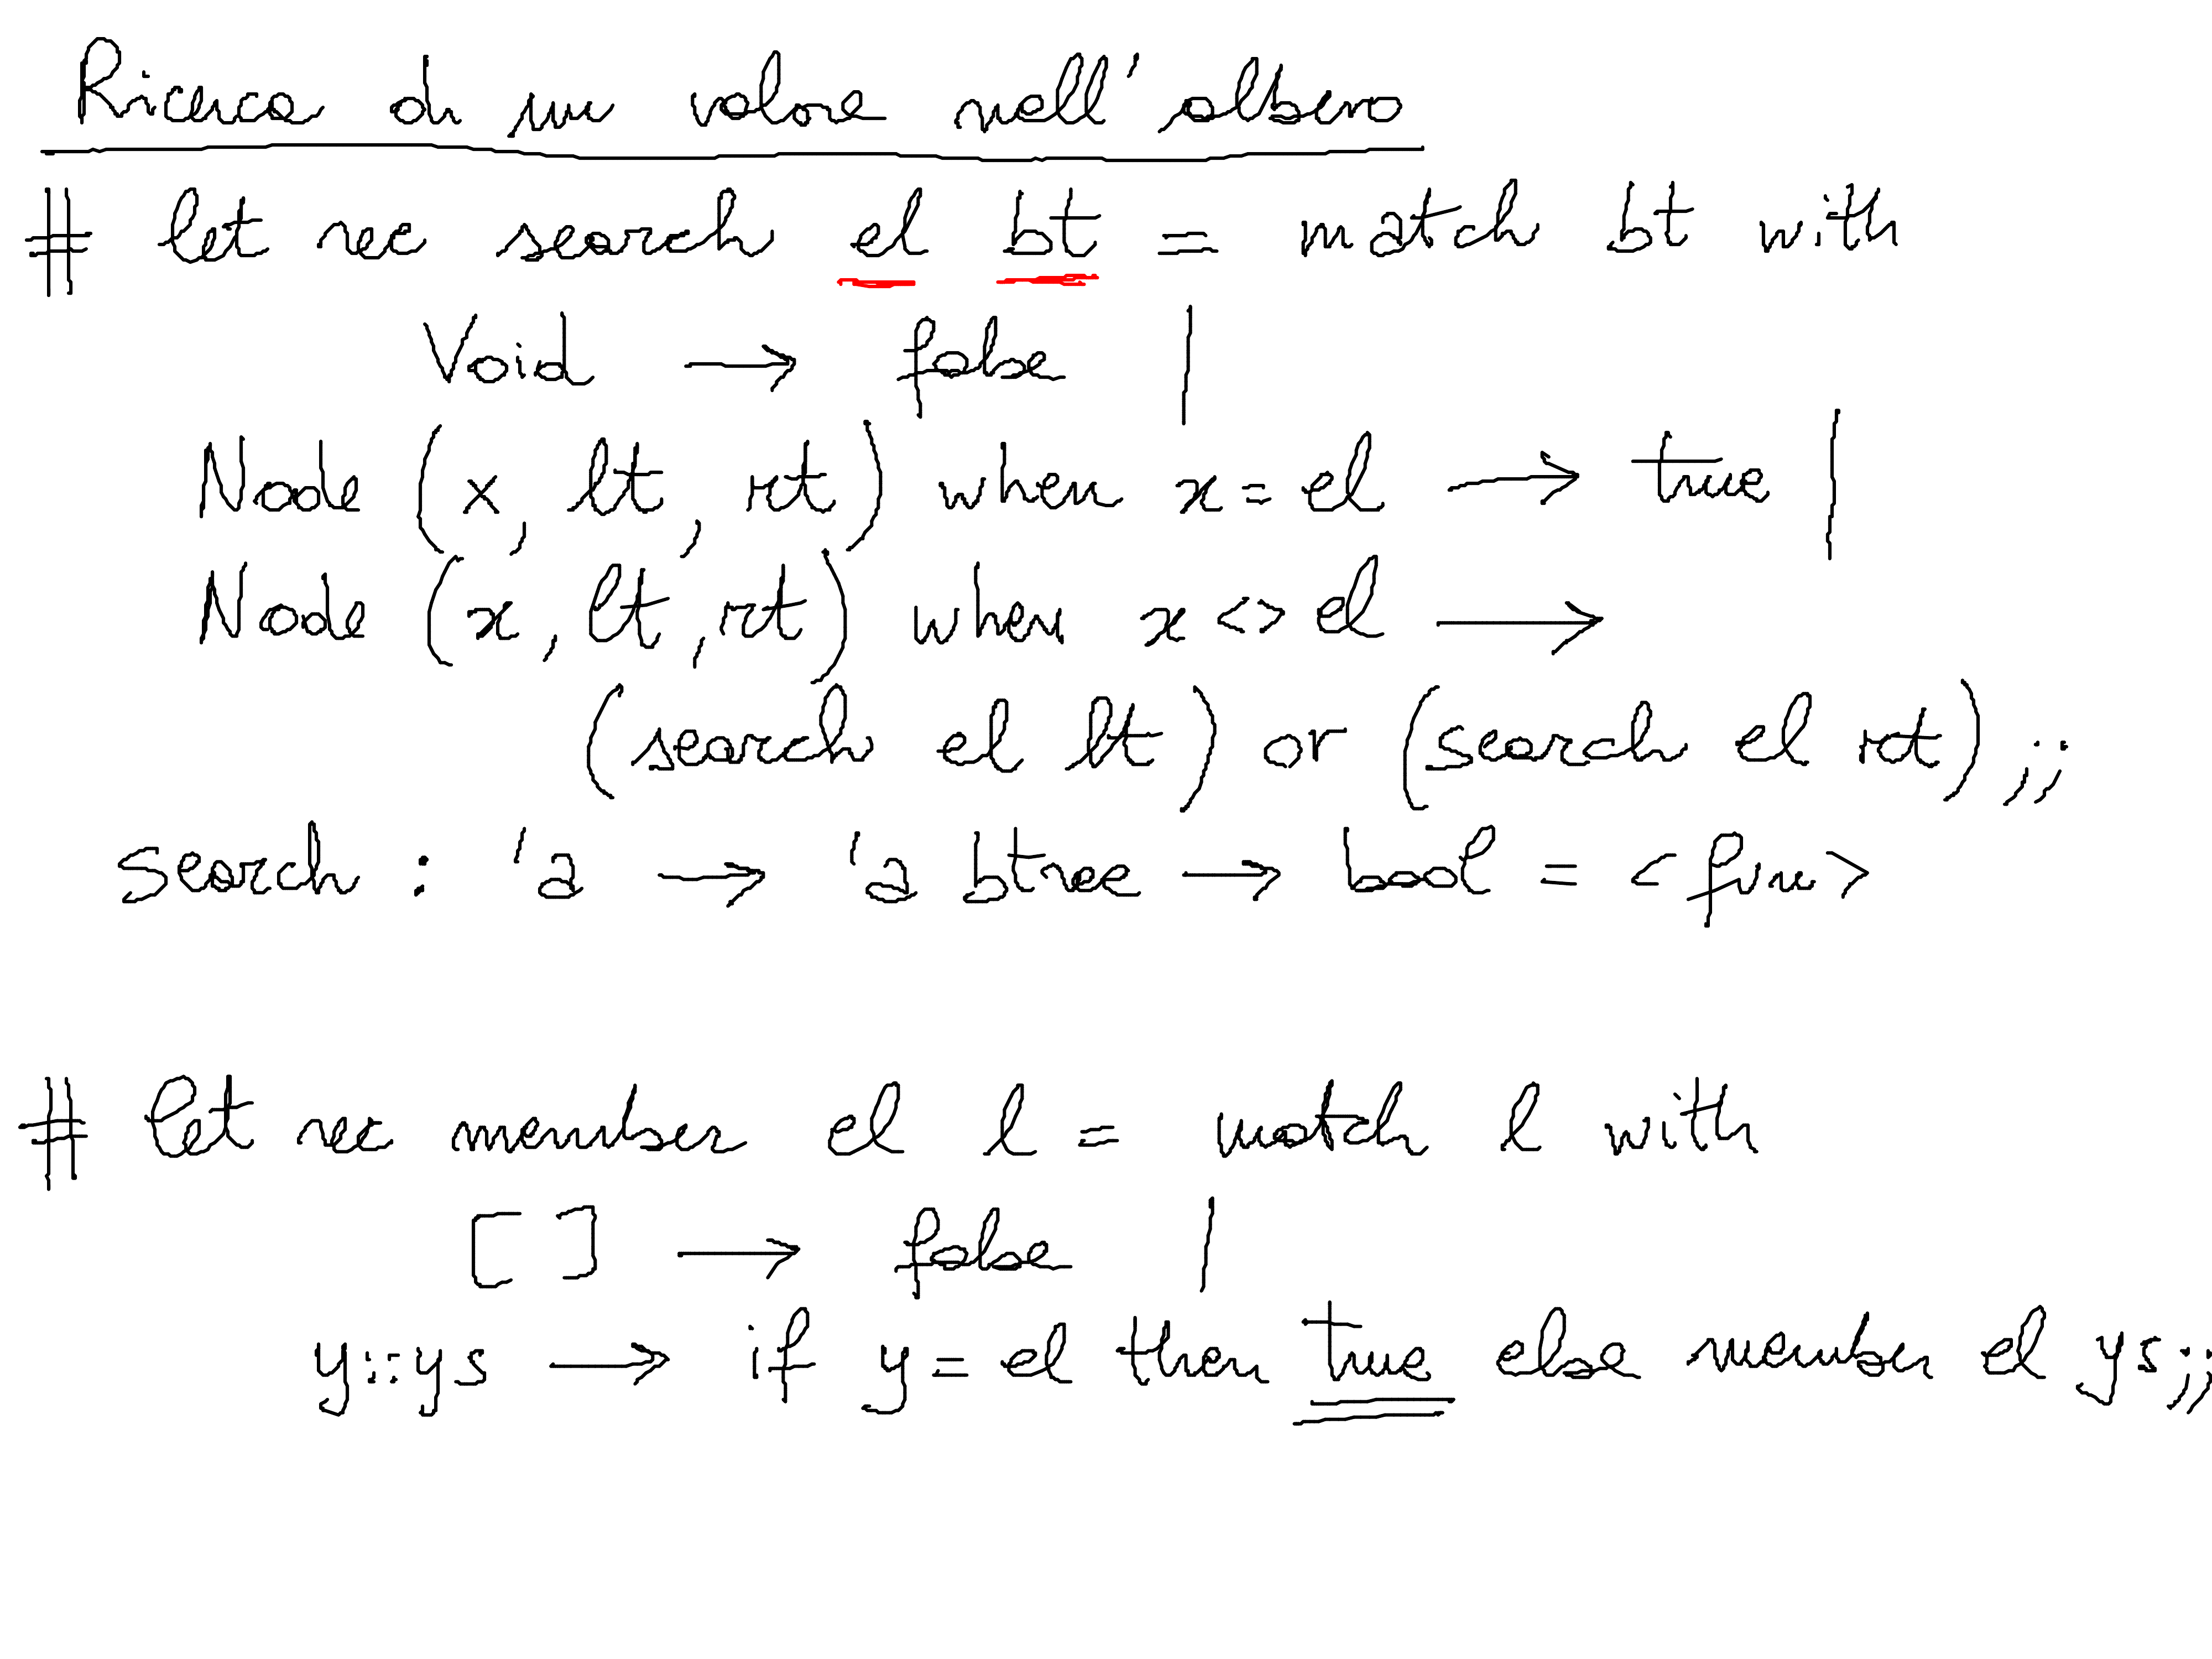 Ricerca di un valore nell'albero
# let rec search el bt = match bt with
Void → false |
Node (x, lt, rt) when x = el → true |
Node (x, lt, rt) when x <> el →
(search el lt) or (search el rt);;
search : 'a → 'a btree → bool = <fun>
# let rec member el l = match l with
[ ] → false |
y::ys → if y = el then true else member el ys;;